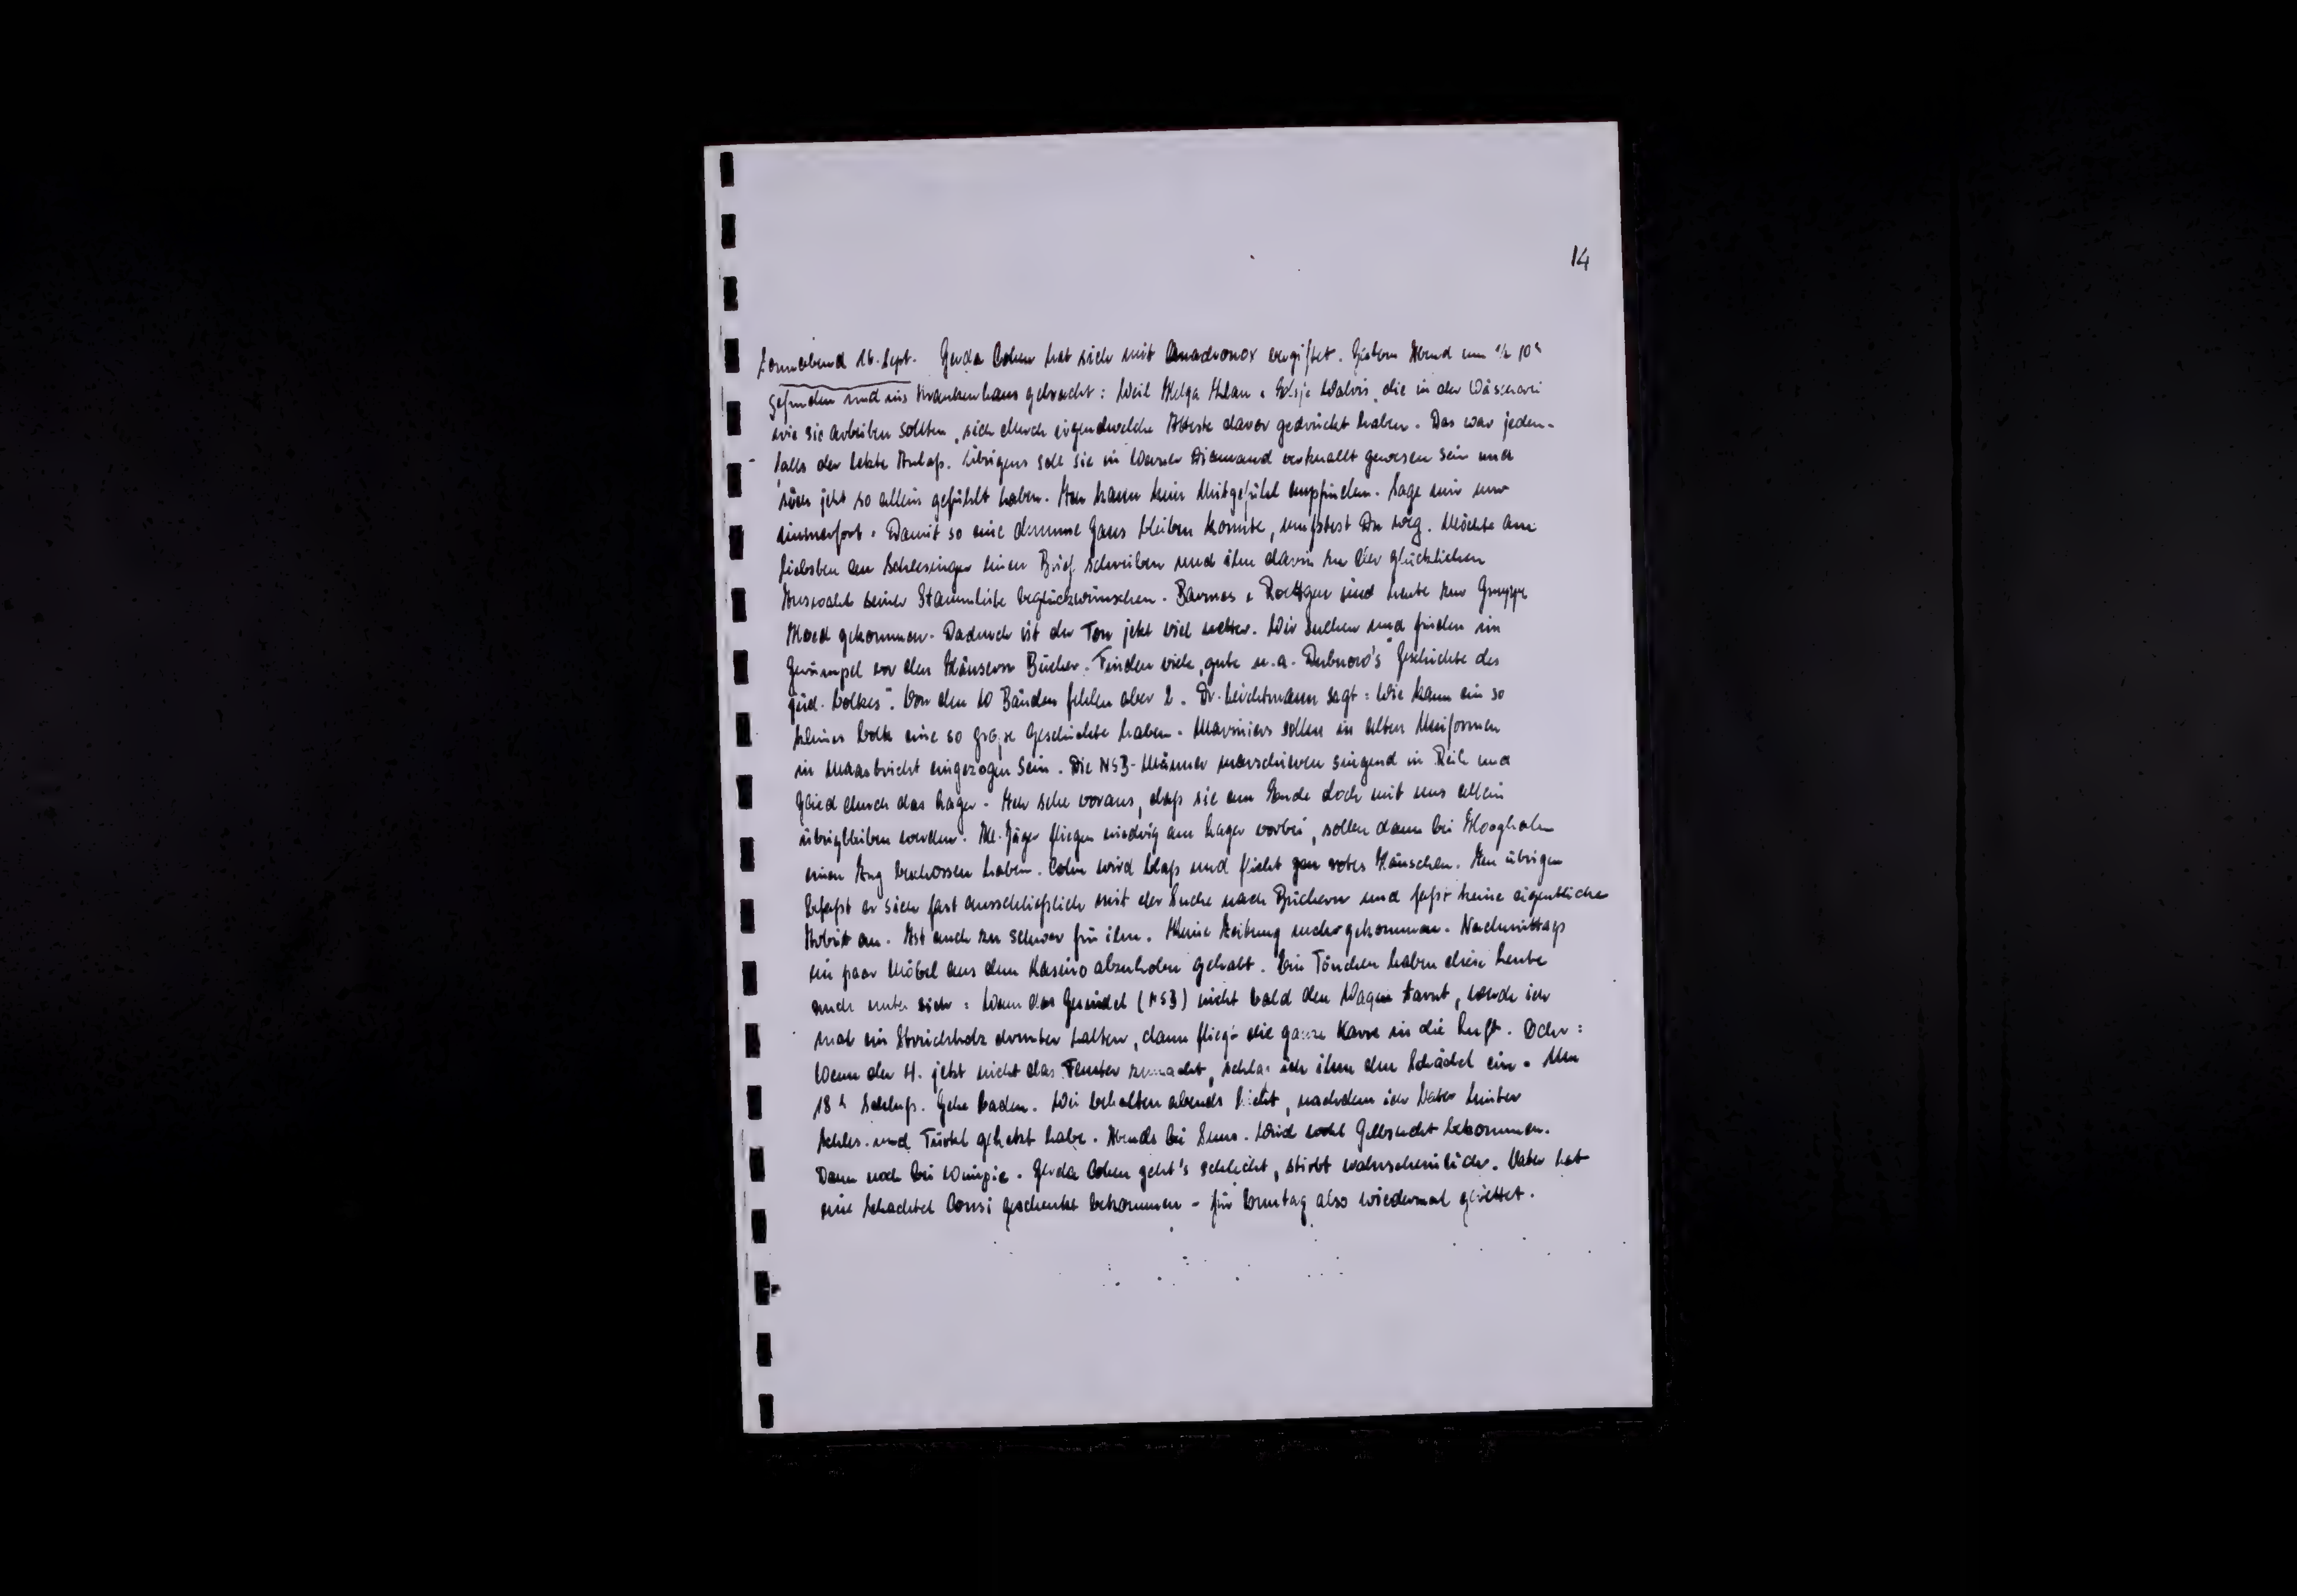 14
Sonnabend 16. Sept. Gerda Cohen hat sich mit Quadronox vergiftet. Gestern Abend um ½ 10 h
gefunden und ins Krankenhaus gebracht: Weil Helga Walvis, die in der Wäscherei
wie sie arbeiten sollten, sich durch irgendwelche Atteste davor gedrückt haben. Das war jeden-
falls der letzte Anlaß. Übrigens soll sie in Werner Diamand verknallt gewesen sein und
sich jetzt so allein gefühlt haben. Ich kann kein Mitgefühl empfinden. Sage mir nur
immerfort: Damit so eine dumme Gans bleiben konnte, mußtest Du weg. Möchte am
liebsten an Schlesinger einen Brief schreiben und ihm darin zu der glücklichen
Auswahl seiner Stammliste beglückwünschen. Roettgen sind heute zur Gruppe
gekommen. Dadurch ist der Ton jetzt viel netter. Wir suchen und finden im
Gerümpel vor den Häusern Bücher. Finden viele, gute u.a. Dubnow's "Geschichte des
jüd. Volkes". Von den 10 Bänden fehlen aber 2. Dr. Leichtmann sagt: Wie kann ein so
kleines Volk eine so große Geschichte haben. Mariniers sollen in alten Uniformen
in Maastricht eingezogen sein. Die NSB-Männer marschieren singend in Reih und
Glied durch das Lager. Ich sehe voraus, daß sie am Ende doch mit uns allein
übrigbleiben werden. Jäger fliegen niedrig am Lager vorbei, sollen dann bei Hooghalen
einen Zug beschossen haben. Cohn wird blaß und flieht zum roten Häuschen. Im übrigen
befaßt er sich fast ausschließlich mit der Suche nach Büchern und faßt keine eigentliche
Arbeit an. Ist auch zu schwer für ihn. Keine Zeitung mehr gekommen. Nachmittags
ein paar Möbel aus dem Kasino abzuholen gehabt. Ein Tönchen haben diese heute
auch unter sich: Wenn das Gesindel (NSB) nicht bald den Wagen tarnt, werde ich
mal ein Streichholz drunter halten, dann fliegt die ganze Karre in die Luft. Oder:
Wenn der H. jetzt nicht das Fenster zumacht, schlag ich ihm den Schädel ein. Um
18 h Schluß. Gehe baden. Wir behalten abends Licht, nachdem ich Vater hinter
Schles. und Türkel gehetzt habe. Abends bei Suns. Wird wohl Gelbsucht bekommen.
Dann noch bei Wimpie. Gerda Cohen geht's schlecht, stirbt wahrscheinlich. Vater hat
eine Schachtel Consi geschenkt bekommen - für Sonntag also wiedermal gerettet.